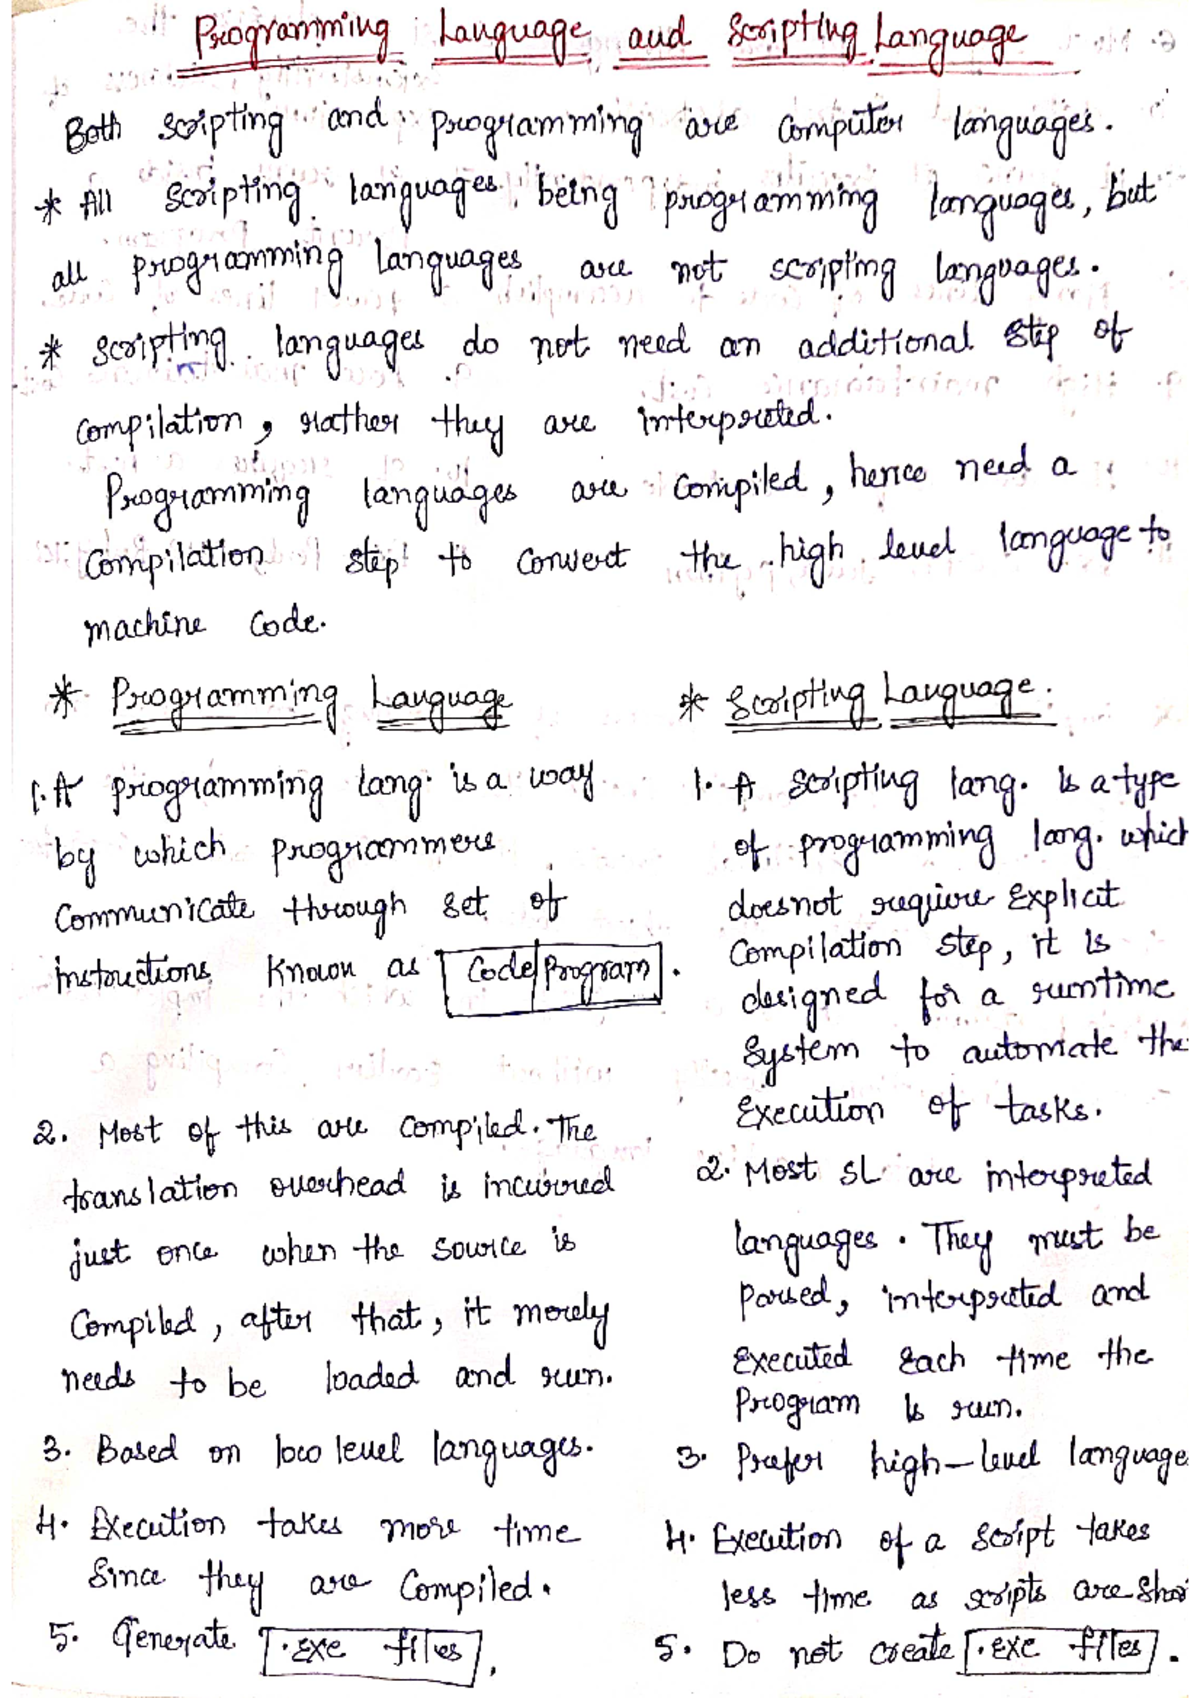 Programming Language and Scripting Language
Both scripting and programming are computer languages.
* All scripting languages being programming languages, but
all programming languages are not scripting languages.
* Scripting languages do not need an additional step of
compilation, rather they are interpreted.
Programming languages are compiled, hence need a
compilation step to convert the high level language to
machine code.
* Programming Language
1. A programming lang. is a way
by which programmers
communicate through set of
instructions known as Code/Program.
2. Most of this are compiled. The
translation overhead is incurred
just once when the source is
compiled, after that, it merely
needs to be loaded and run.
3. Based on low level languages.
4. Execution takes more time
since they are compiled.
5. Generate .exe files,
* Scripting Language.
1. A scripting lang. is a type
of programming lang. which
doesnot require explicit
compilation step, it is
designed for a runtime
system to automate the
execution of tasks.
2. Most SL are interpreted
languages. They must be
parsed, interpreted and
executed each time the
program is run.
3. Prefer high-level language
4. Execution of a script takes
less time as scripts are shor
5. Do not create .exe files.